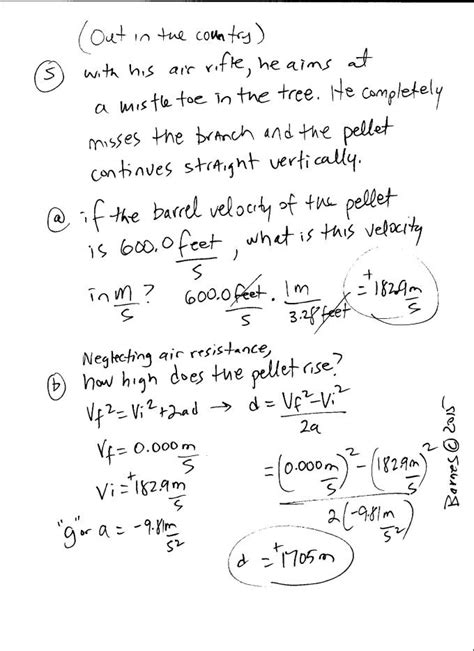 (Out in the country)
⑤ with his air rifle, he aims at
a mistletoe in the tree. He completely
misses the branch and the pellet
continues straight vertically.
ⓐ if the barrel velocity of the pellet
is 600.0 feet/s, what is this velocity
in m/s? 600.0 feet/s · 1m/3.28 feet = +182.9 m/s
Neglecting air resistance,
ⓑ how high does the pellet rise?
Vf² = Vi² + 2ad → d = Vf² - Vi² / 2a
Vf = 0.000 m/s
= (0.000 m/s)² - (182.9 m/s)² / 2(-9.81 m/s²)
Vi = +182.9 m/s
"g" or a = -9.81 m/s²
d = +1705 m
Barnes © 2015